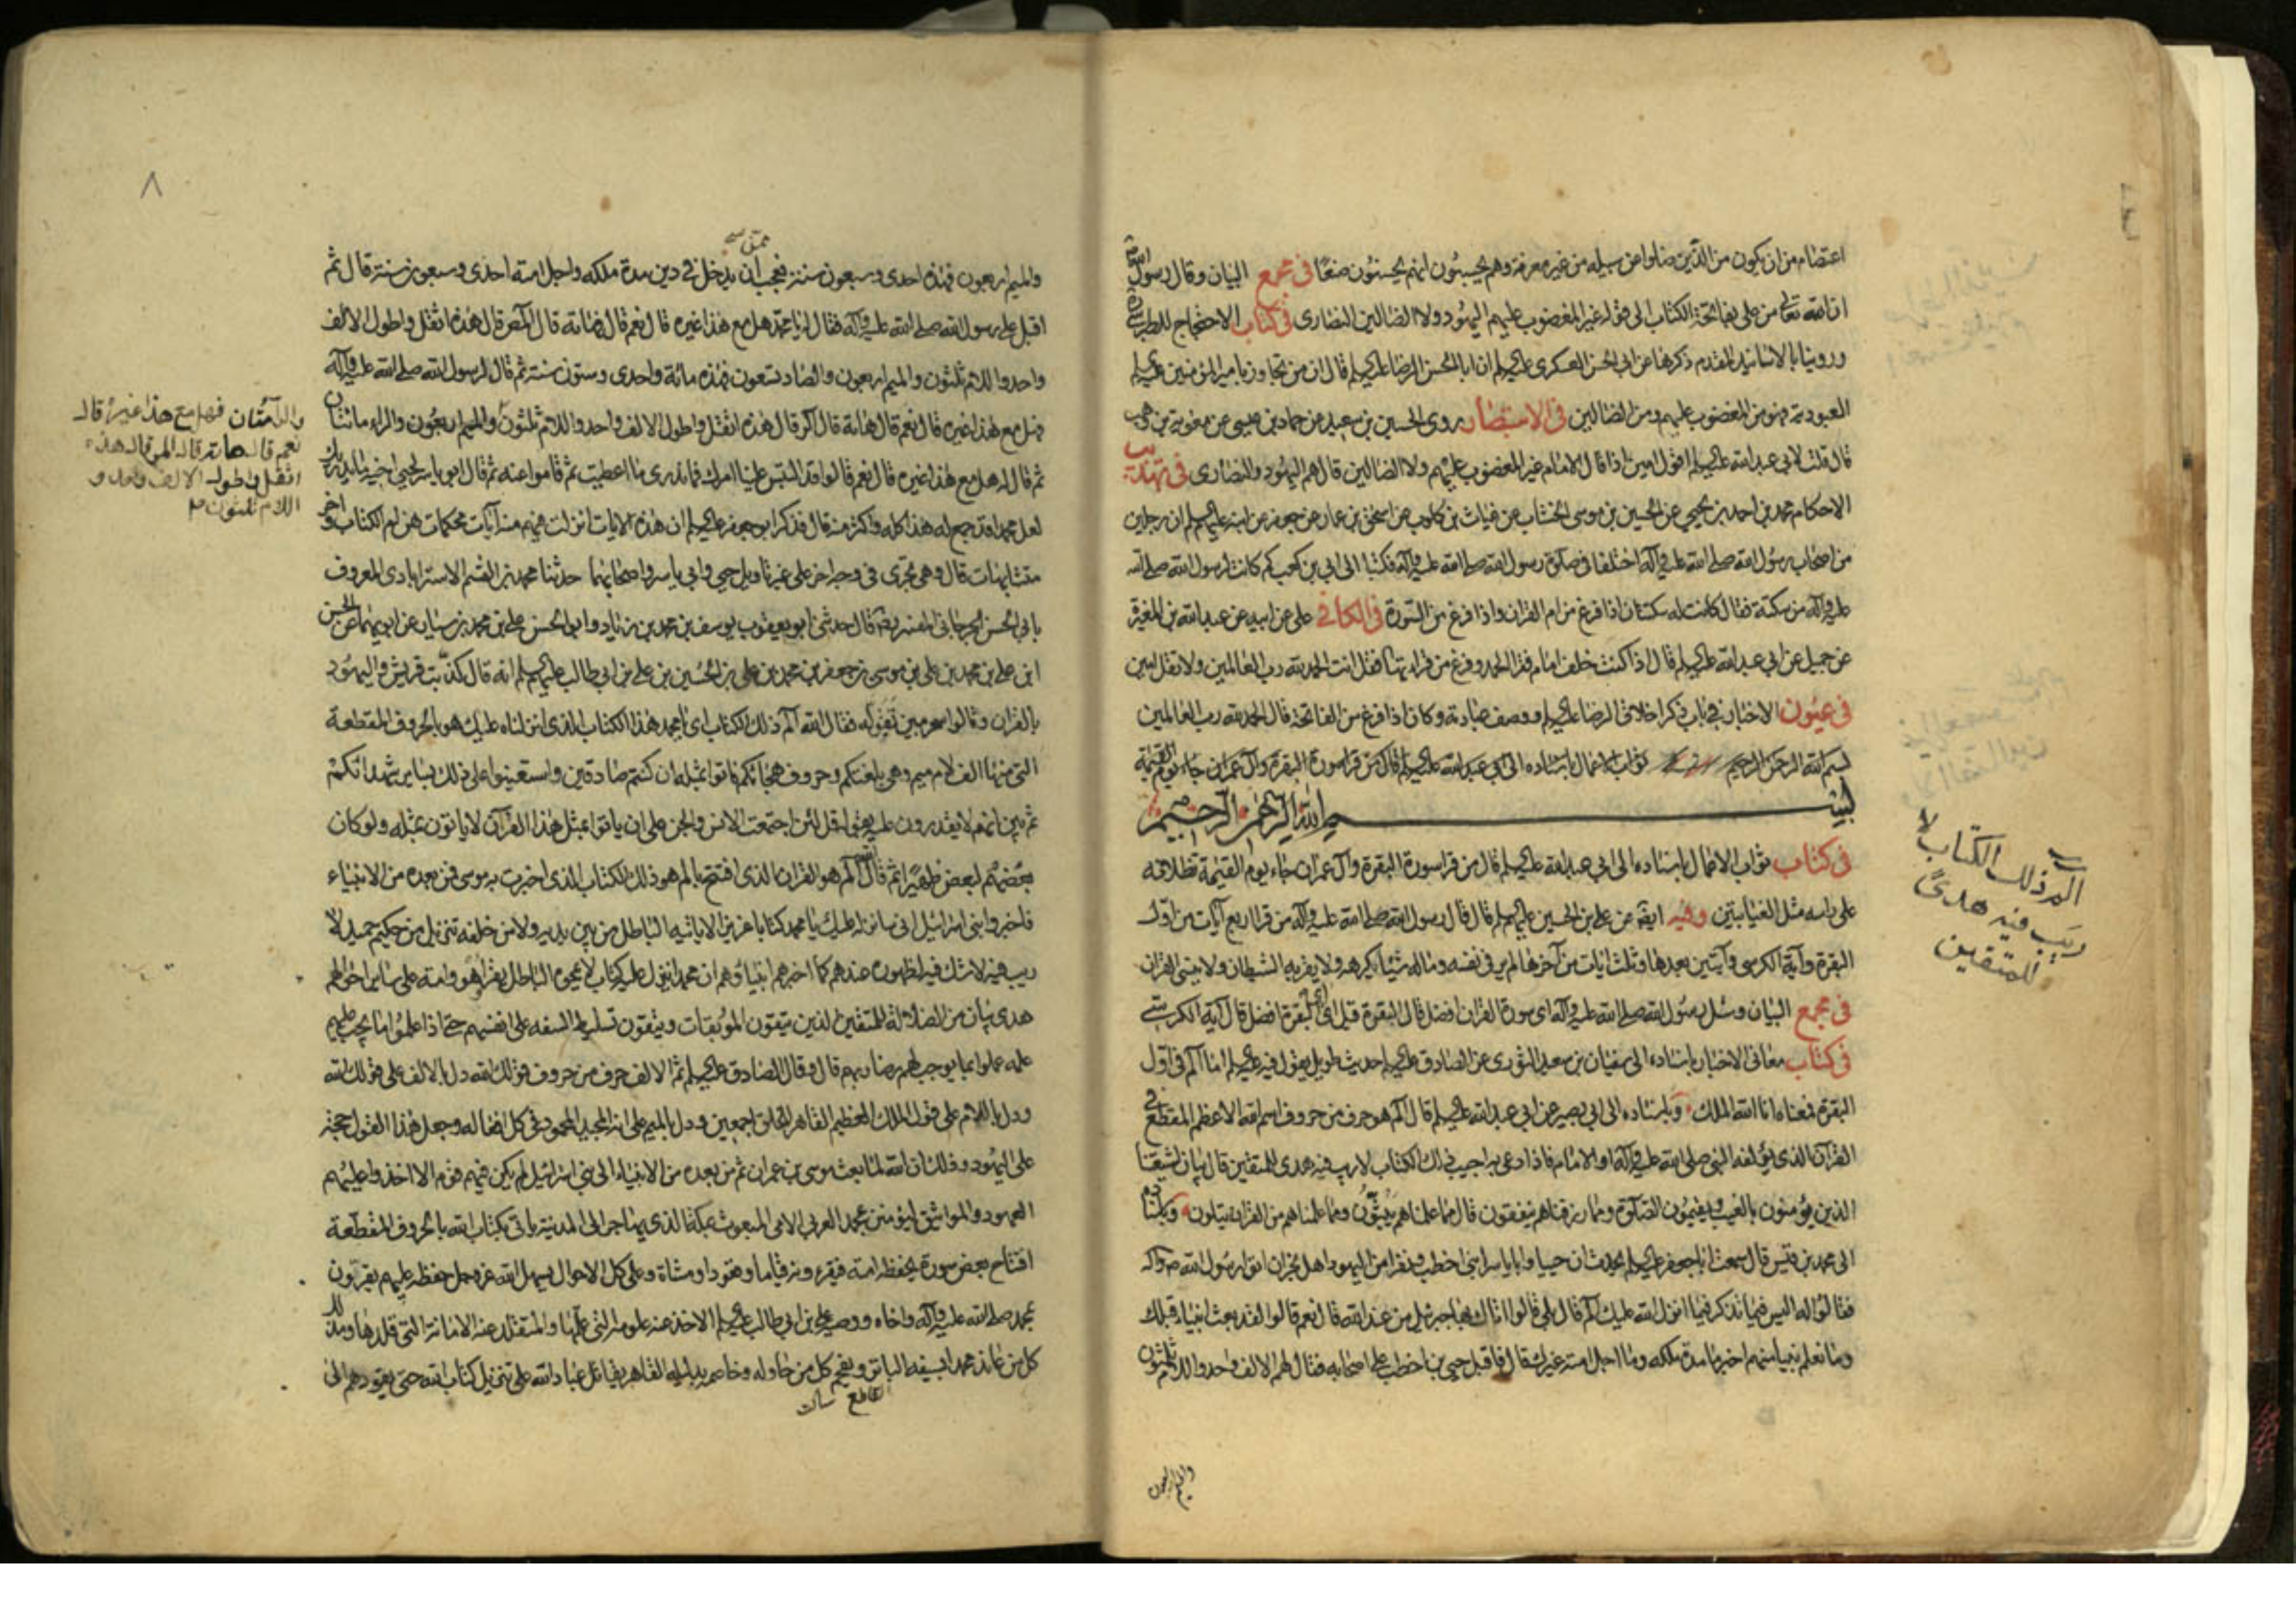 اعتصام من ان يكون من الذين ضلوا عن سبيله من غير معرفة وهم يحسبون انهم يحسنون صنعا في مجمع البيان وقال رسول الله
ان الله تعالى من علي بفاتحة الكتاب الى قوله غير المغضوب عليهم اليهود ولا الضالين النصارى في كتاب الاحتجاج للطبرسي
وروينا بالاسانيد المقدم ذكرها عن ابي الحسن العسكري عليه السلم ان ابا الحسن الرضا عليه السلم قال ان من تجاوز بامير المؤمنين عليه السلم
العبودية فهو من المغضوب عليهم ومن الضالين في الاستبصار روى الحسين بن سعيد عن حماد بن عيسى عن معوية بن وهب
قال قلت لابي عبد الله عليه السلم اقول امين اذا قال الامام غير المغضوب عليهم ولا الضالين قال هم اليهود والنصارى في تهذيب
الاحكام محمد بن احمد بن يحيى عن الحسين بن موسى الخشاب عن غياث بن كلوب عن اسحق بن عمار عن جعفر عن ابيه عليهم السلم ان رجلين
من اصحاب رسول الله صلى الله عليه وآله اختلفا في صلوة رسول الله صلى الله عليه وآله فكتبا الى ابي بن كعب كم كانت لرسول الله صلى الله
عليه وآله من سكتة فقال كانت له سكتتان اذا فرغ من ام القران واذا فرغ من السورة في الكافي علي عن ابيه عن عبد الله بن المغيرة
عن جميل عن ابي عبد الله عليه السلم قال اذا كنت خلف امام فقرا الحمد وفرغ من قراءتها فقل انت الحمد لله رب العالمين ولا تقل امين
في عيون الاخبار في باب ذكر اخلاق الرضا عليه السلم ووصف عبادته وكان اذا فرغ من الفاتحة قال الحمد لله رب العالمين
بسم الله الرحمن الرحيم ثواب الاعمال باسناده الى ابي عبد الله عليه السلم قال من قرا سورة البقرة وآل عمران جاء يوم القيمة
بسم الله الرحمن الرحيم
في كتاب ثواب الاعمال باسناده الى ابي عبد الله عليه السلم قال من قرا سورة البقرة وآل عمران جاء يوم القيمة تظلانه
على راسه مثل الغيابتين وفيه ايضا عن علي بن الحسين عليهم السلم قال قال رسول الله صلى الله عليه وآله من قرا اربع آيات من اول
البقرة وآية الكرسي وآيتين بعدها وثلث ايات من آخرها لم ير في نفسه وماله شيئا يكرهه ولا يقربه الشيطان ولا ينسى القران
في مجمع البيان وسئل رسول الله صلى الله عليه وآله اي سورة القران افضل قال البقرة قيل اي آية البقرة افضل قال آية الكرسي
في كتاب معاني الاخبار باسناده الى سفيان بن سعيد الثوري عن الصادق عليه السلم حديث طويل يقول فيه عليه السلم اما آلم في اول
البقرة فمعناه انا الله الملك وباسناده الى ابي بصير عن ابي عبد الله عليه السلم قال آلم هو حرف من حروف اسم الله الاعظم المقطع في
القرآن الذي يؤلفه النبي صلى الله عليه وآله او الامام فاذا دعى به اجيب ذلك الكتاب لا ريب فيه هدى للمتقين قال بيان لشيعتنا
الذين يؤمنون بالغيب ويقيمون الصلوة ومما رزقناهم ينفقون قال مما علمناهم يبثون ومما علمناهم من القران يتلون وباسناده
الى محمد بن قيس قال سمعت ابا جعفر عليه السلم يحدث ان حييا وابا ياسر ابني اخطب ونفرا من اليهود اهل نجران اتوا رسول الله ص وآله
فقالوا له اليس فيما تذكر فيما انزل الله عليك آلم قال بلى قالوا اتاك بها جبرئيل من عند الله قال نعم قالوا لقد بعث انبياء قبلك
وما نعلم نبيا منهم اخبرنا مدة ملكه وما اجل امته غيرك قال فاقبل حيي بن اخطب على اصحابه فقال لهم الالف واحد واللام ثلثون
الم ذلك الكتاب لا
ريب فيه هدى
للمتقين
والميم اربعون
٨
والميم اربعون فهذه احدى وسبعون سنة فعجب ان يدخل في دين مدة ملكه واجل امته احدى وسبعون سنة قال ثم
اقبل على رسول الله صلى الله عليه وآله فقال له يا محمد هل مع هذا غيره قال نعم قال هاته قال آلمص قال هذه اثقل واطول الالف
واحد واللام ثلثون والميم اربعون والصاد تسعون فهذه مائة واحدى وستون سنة ثم قال لرسول الله صلى الله عليه وآله
فهل مع هذا غيره قال نعم قال هاته قال آلر قال هذه اثقل واطول الالف واحد واللام ثلثون والميم اربعون والراء مائتان
ثم قال له هل مع هذا غيره قال نعم قالوا قد التبس علينا امرك فما ندري ما اعطيت ثم قاموا عنه ثم قال ابو ياسر لحيي اخيه ما يدريك
لعل محمدا قد جمع له هذا كله واكثر منه قال فذكر ابو جعفر عليه السلم ان هذه الايات انزلت فيهم منه آيات محكمات هن ام الكتاب واخر
متشابهات قال وهي تجري في وجه اخر على غير تاويل حيي وابي ياسر واصحابهما حدثنا محمد بن القسم الاسترابادي المعروف
بابي الحسن الجرجاني المفسر رضه قال حدثني ابو يعقوب يوسف بن محمد بن زياد وابو الحسن علي بن محمد بن سيار عن ابويهما عن الحسن
ابن علي بن محمد بن علي بن موسى بن جعفر بن محمد بن علي بن الحسين بن علي بن ابي طالب عليهم السلم انه قال كذبت قريش واليهود
بالقران وقالوا سحر مبين تقوله فقال الله آلم ذلك الكتاب اي يا محمد هذا الكتاب الذي انزلناه عليك هو بالحروف المقطعة
التي منها الف لام ميم وهي بلغتكم وحروف هجائكم فاتوا بمثله ان كنتم صادقين واستعينوا على ذلك بساير شهدائكم
ثم بين انهم لا يقدرون عليه بقوله قل لئن اجتمعت الانس والجن على ان ياتوا بمثل هذا القرآن لا ياتون بمثله ولو كان
بعضهم لبعض ظهيرا ثم قال الله آلم هو القران الذي افتتح بالم هو ذلك الكتاب الذي اخبرت به موسى فمن بعده من الانبياء
فاخبروا بني اسرائيل اني سانزله عليك يا محمد كتابا عزيزا لا ياتيه الباطل من بين يديه ولا من خلفه تنزيل من حكيم حميد لا
ريب فيه لا شك فيه لظهوره عندهم كما اخبرهم انبياؤهم ان محمدا ينزل عليه كتاب لا يمحوه الباطل يقراه هو وامته على ساير احوالهم
هدى بيان من الضلالة للمتقين الذين يتقون الموبقات ويتقون تسليط السفه على انفسهم حتى اذا علموا ما يجب عليهم
علمه عملوا بما يوجب لهم رضا ربهم قال وقال الصادق عليه السلم ثم الالف حرف من حروف قولك الله دل بالالف على قولك الله
ودل باللام على قولك الملك العظيم القاهر للخلق اجمعين ودل بالميم على انه المجيد المحمود في كل افعاله وجعل هذا القول حجة
على اليهود وذلك ان الله لما بعث موسى بن عمران ثم من بعده من الانبياء الى بني اسرائيل لم يكن فيهم قوم الا اخذوا عليهم
العهود والمواثيق ليؤمنن بمحمد العربي الامي المبعوث بمكة الذي يهاجر الى المدينة ياتي بكتاب الله بالحروف المقطعة
افتتاح بعض سورة يحفظه امته فيقرءونه قياما وقعودا ومشاة وعلى كل الاحوال يسهل الله عز وجل حفظه عليهم يقرنون
بمحمد صلى الله عليه وآله واخاه ووصيه علي بن ابي طالب عليه السلم الاخذ عنه علومه التي علمها والمتقلد عنه الامانة التي قلدها ومذلل
كل من عاند محمدا بسيفه الباتر ويفحم كل من حاوله وخاصمه بدليله القاهر يقاتل عباد الله على تنزيل كتاب الله حتى يقودهم الى
والراء مائتان فهل مع هذا غيره قال
نعم قال هاته قال المر قال هذه
اثقل واطول الالف واحد و
اللام ثلثون